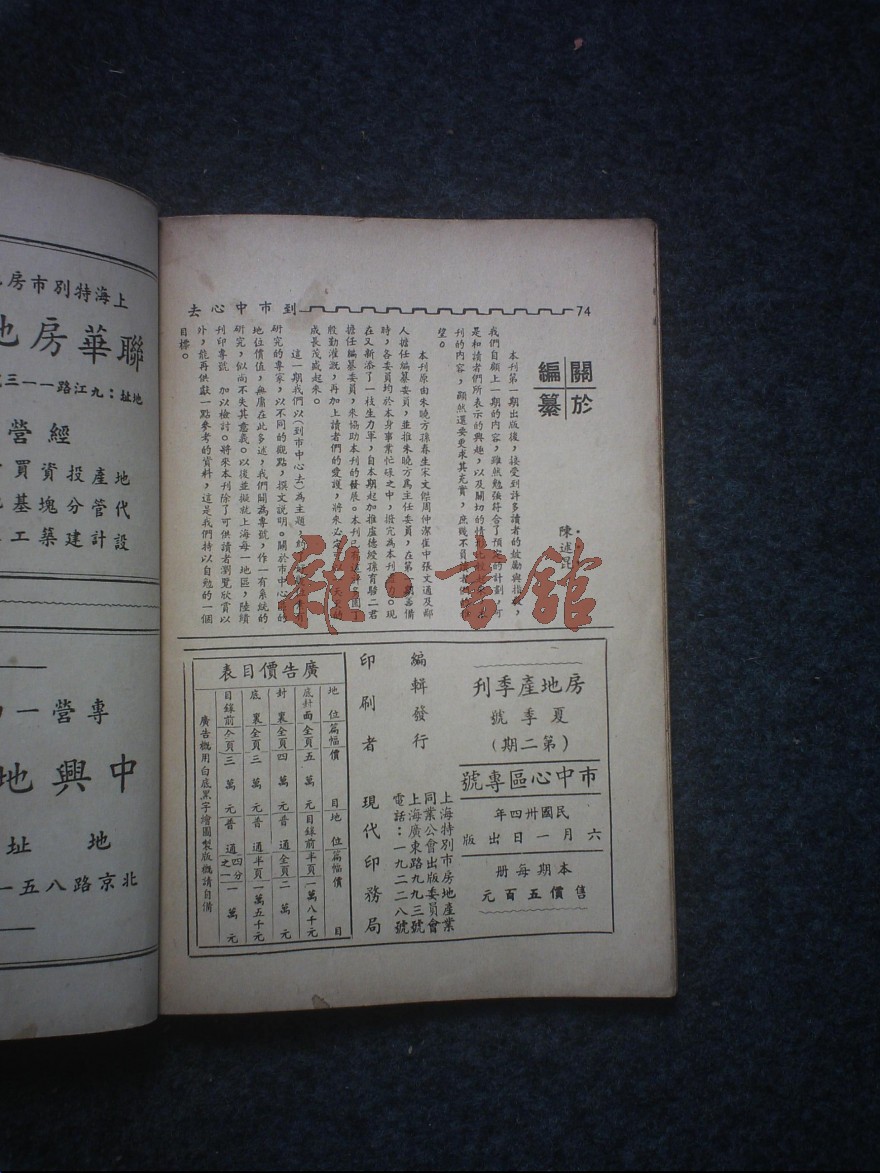 74
到市中心去
關於編纂
陳述昆
本刊第一期出版後，接受到許多讀者的鼓勵與指教，
我們自顧上一期的內容，雖然勉強符合了預定的計劃，可
是和讀者們所表示的興趣，以及關切的情
刊的內容，顯然還要更求其充實，庶幾不負
望。
本刊原由朱曉方孫春生宋文傑周仲潔崔中張文通及鄒
人擔任編纂委員，並推朱曉方爲主任委員，在第一期籌備
時，各委員均於本身事業忙碌之中，撥冗為本刊
現
在又新添了一枝生力軍，自本期起加推盧德綬孫育騮二君
擔任編纂委員，來協助本刊的發展。本刊已
殷勤灌溉，再加上讀者們的愛護，將來必定
成長茂盛起來。
這一期我們以（到市中心去）為主題，約
研究的專家，以不同的觀點，撰文說明。關於市中心區的
地位價值，無庸在此多述，我們闢為專號，作一有系統的
研究，似尚不失其意義。以後並擬就上海每一地區，陸續
刊印專號　加以檢討。將來本刊除了可供讀者瀏覽欣賞以
外，能再供獻一點參考的資料，這是我們持以自勉的一個
目標。
雜·書館
房地產季刊
夏季號
（第二期）
市中心區專號
民國卅四年
六月一日出版
本期每册
售價五百元
編輯發行
上海特別市房地產業
同業公會出版委員會
上海廣東路九九三號
電話：一九二二八號
印刷者　現代印務局
廣告價目表
地位　篇幅　價目　地位　篇幅　價目
底封面　全頁　五萬元　目錄前　半頁　一萬八千元
封裏　全頁　四萬元　普通　全頁　二萬元
底裏　全頁　三萬元　普通　半頁　一萬五千元
目錄前　全頁　三萬元　普通　四分之一　一萬元
廣告概用白底黑字繪圖製版概請自備
上海特別市房
聯華房地
地址：九江路一一三
經營
地產投資買
代管分塊基
設計建築工
專營一
中興地
地址
北京路八五一